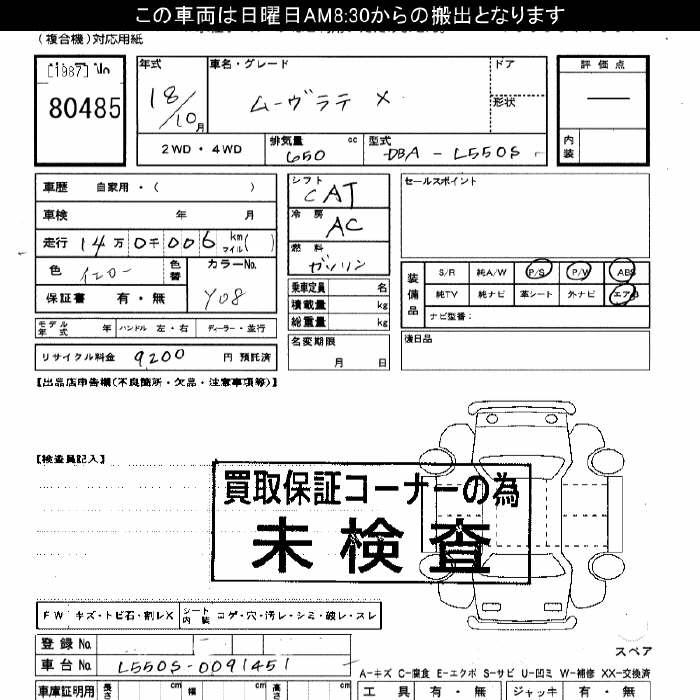 この車両は日曜日AM8:30からの搬出となります
(複合機)対応用紙
[1987] No
80485
年式 18/10月
車名・グレード ムーヴラテ X
ドア
形状
評価点 —
内装
2WD・4WD
排気量 650 cc
型式 DBA-L550S
車歴 自家用・( )
車検 年 月
走行 14万0千006 km マイル( )
色 イエロー 色替
カラーNo. Y08
保証書 有・無
モデル年式 年 ハンドル 左・右 ディーラー・並行
リサイクル料金 9200 円 預託済
シフト CAT
冷房 AC
燃料 ガソリン
乗車定員 名
積載量 kg
総重量 kg
名変期限
月 日
セールスポイント
装備品
S/R 純A/W P/S P/W ABS
純TV 純ナビ 革シート 外ナビ エアB
ナビ型番:
後日品
【出品店申告欄(不良箇所・欠品・注意事項等)】
【検査員記入】
買取保証コーナーの為
未検査
FW キズ・トビ石・割レX
シート内装 コゲ・穴・汚レ・シミ・破レ・スレ
登録No.
車台No. L550S-0091451
スペア
A-キズ C-腐食 E-エクボ S-サビ U-凹ミ W-補修 XX-交換済
車庫証明用 長さ cm 幅 cm 高さ cm
工具 有・無 ジャッキ 有・無